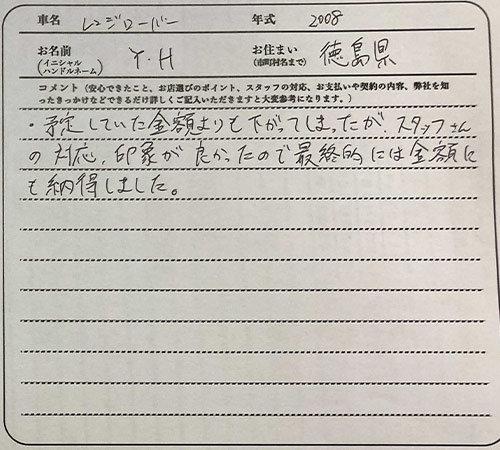 車名 レンジローバー 年式 2008
お名前 (イニシャル ハンドルネーム) Y・H お住まい (市町村名まで) 徳島県
コメント（安心できたこと、お店選びのポイント、スタッフの対応、お支払いや契約の内容、弊社を知
ったきっかけなどできるだけ詳しくご記入いただきますと大変参考になります。）
・予定していた金額よりも下がってしまったが、スタッフさん
の対応、印象が良かったので最終的には金額に
も納得しました。